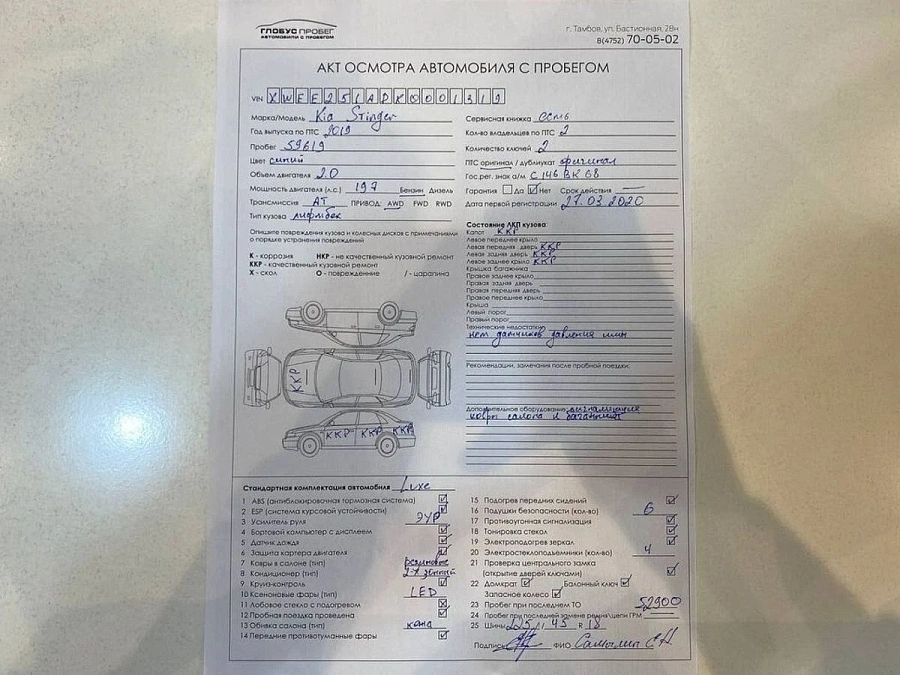 ГЛОБУС ПРОБЕГ
АВТОМОБИЛИ С ПРОБЕГОМ
г. Тамбов, ул. Бастионная, 28н
8(4752) 70-05-02
АКТ ОСМОТРА АВТОМОБИЛЯ С ПРОБЕГОМ
VIN XWEE251ADK0001319
Марка/Модель Kia Stinger
Год выпуска по ПТС 2019
Пробег 59619
Цвет синий
Объем двигателя 2.0
Мощность двигателя (л.с.) 197 Бензин Дизель
Трансмиссия АТ ПРИВОД: AWD FWD RWD
Тип кузова лифтбек
Опишите повреждения кузова и колесных дисков с примечаниями
о порядке устранения повреждений
К - коррозия НКР - не качественный кузовной ремонт
ККР - качественный кузовной ремонт
Х - скол О - повреждение / - царапина
ККР
ККР ККР ККР
Сервисная книжка есть
Кол-во владельцев по ПТС 2
Количество ключей 2
ПТС оригинал / дубликат оригинал
Гос.рег. знак а/м С 146 ВК 68
Гарантия Да Нет Срок действия —
Дата первой регистрации 27.03.2020
Состояние ЛКП кузова:
Капот ККР
Левое переднее крыло
Левая передняя дверь ККР
Левая задняя дверь ККР
Левое заднее крыло ККР
Крышка багажника
Правое заднее крыло
Правая задняя дверь
Правая передняя дверь
Правое переднее крыло
Крыша
Левый порог
Правый порог
Технические недостатки
нет датчиков давления шин
Рекомендации, замечания после пробной поездки:
Дополнительное оборудование: сигнализация
ковры салона и багажника
Стандартная комплектация автомобиля Luxe
1 ABS (антиблокировочная тормозная система)
2 ESP (система курсовой устойчивости)
3 Усилитель руля ЭУР
4 Бортовой компьютер с дисплеем
5 Датчик дождя
6 Защита картера двигателя
7 Ковры в салоне (тип) резиновые
8 Кондиционер (тип) 2-х зонный
9 Круиз-контроль
10 Ксеноновые фары (тип) LED
11 Лобовое стекло с подогревом
12 Пробная поездка проведена
13 Обивка салона (тип) кожа
14 Передние противотуманные фары
15 Подогрев передних сидений
16 Подушки безопасности (кол-во) 6
17 Противоугонная сигнализация
18 Тонировка стекол
19 Электроподогрев зеркал
20 Электростеклоподъемники (кол-во) 4
21 Проверка центрального замка
(открытие дверей ключами)
22 Домкрат Балонный ключ
Запасное колесо
23 Пробег при последнем ТО 52900
24 Пробег при последней замене ремня/цепи ГРМ
25 Шины 225 / 45 R 18
Подпись ФИО